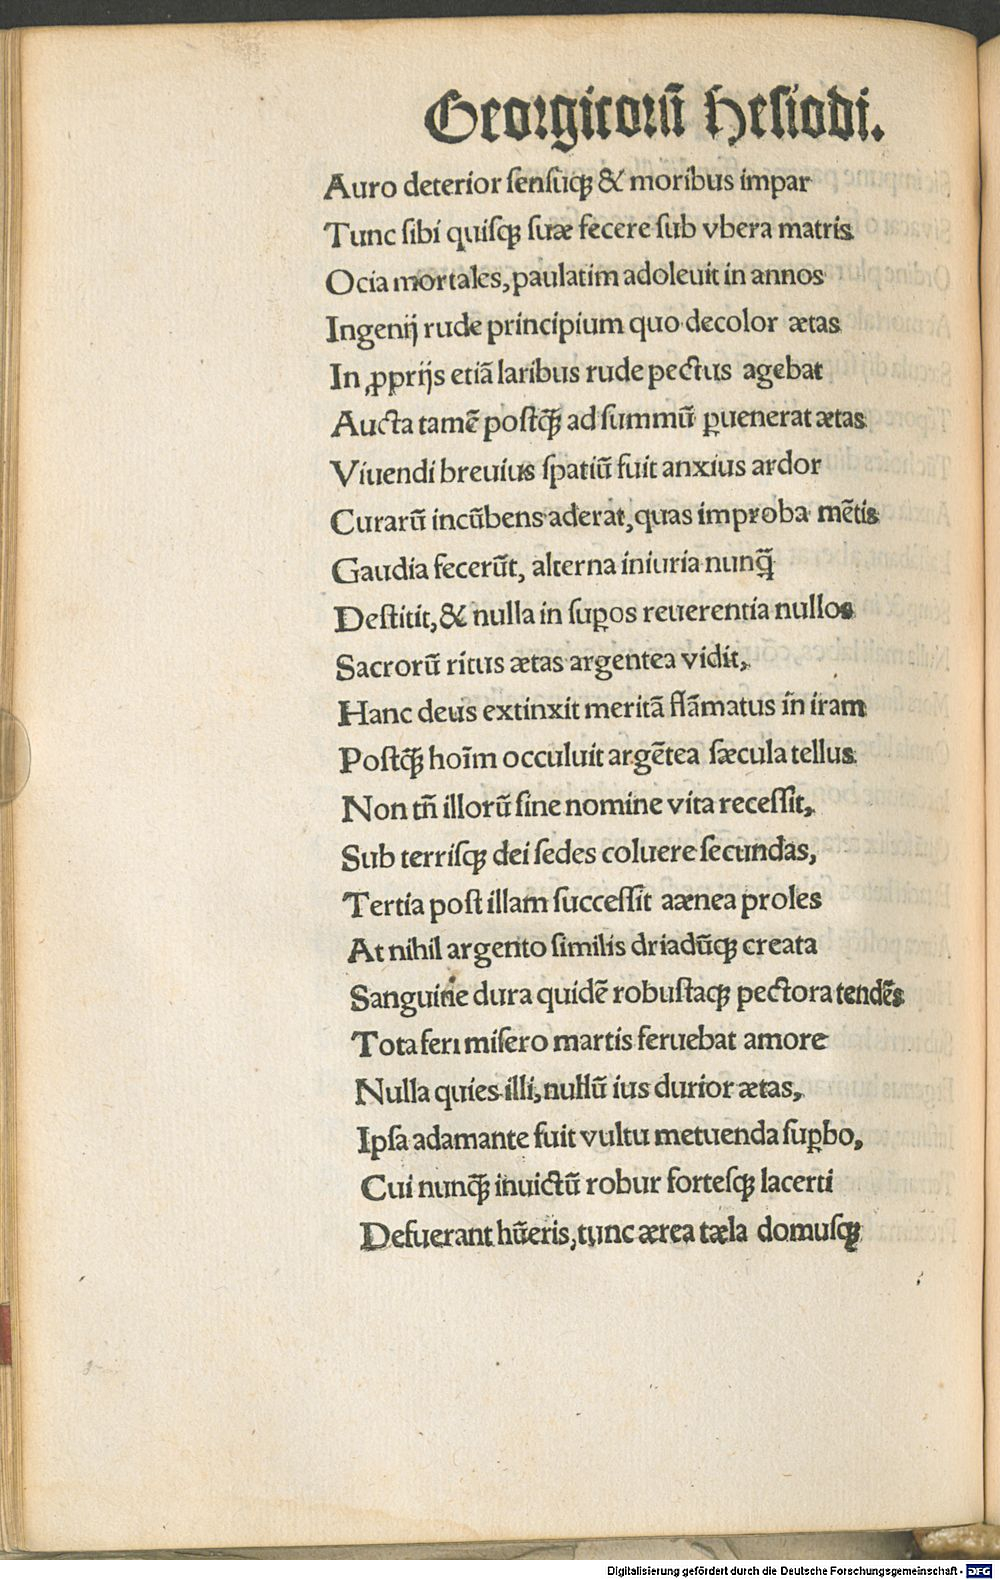 Georgicorũ Hesiodi.
Auro deterior ſenſuq̃ & moribus impar
Tunc ſibi quiſqꝫ ſuæ fecere ſub vbera matris
Ocia mortales, paulatim adoleuit in annos
Ingenij rude principium quo decolor ætas
In ꝓprijs etiã laribus rude pectus agebat
Aucta tamẽ poſtq̃ꝫ ad ſummũ ꝑuenerat ætas
Viuendi breuius ſpatiũ fuit anxius ardor
Curarũ incũbens aderat, quas improba mẽtis
Gaudia fecerũt, alterna iniuria nunq̃ꝫ
Deſtitit, & nulla in ſuꝑos reuerentia nullos
Sacrorũ ritus ætas argentea vidit,
Hanc deus extinxit meritã flãmatus in iram
Poſtq̃ꝫ hoĩm occuluit argẽtea ſæcula tellus
Non tñ illorũ ſine nomine vita receſſit,
Sub terriſqꝫ dei ſedes coluere ſecundas,
Tertia poſt illam ſucceſſit aænea proles
At nihil argento ſimilis driadũqꝫ creata
Sanguine dura quidẽ robuſtaqꝫ pectora tendẽs
Tota feri miſero martis feruebat amore
Nulla quies illi, nullũ ius durior ætas,
Ipſa adamante fuit vultu metuenda ſuꝑbo,
Cui nunq̃ꝫ inuictũ robur forteſqꝫ lacerti
Defuerant hũeris, tunc ærea tæla domuſqꝫ
Digitalisierung gefördert durch die Deutsche Forschungsgemeinschaft - DFG